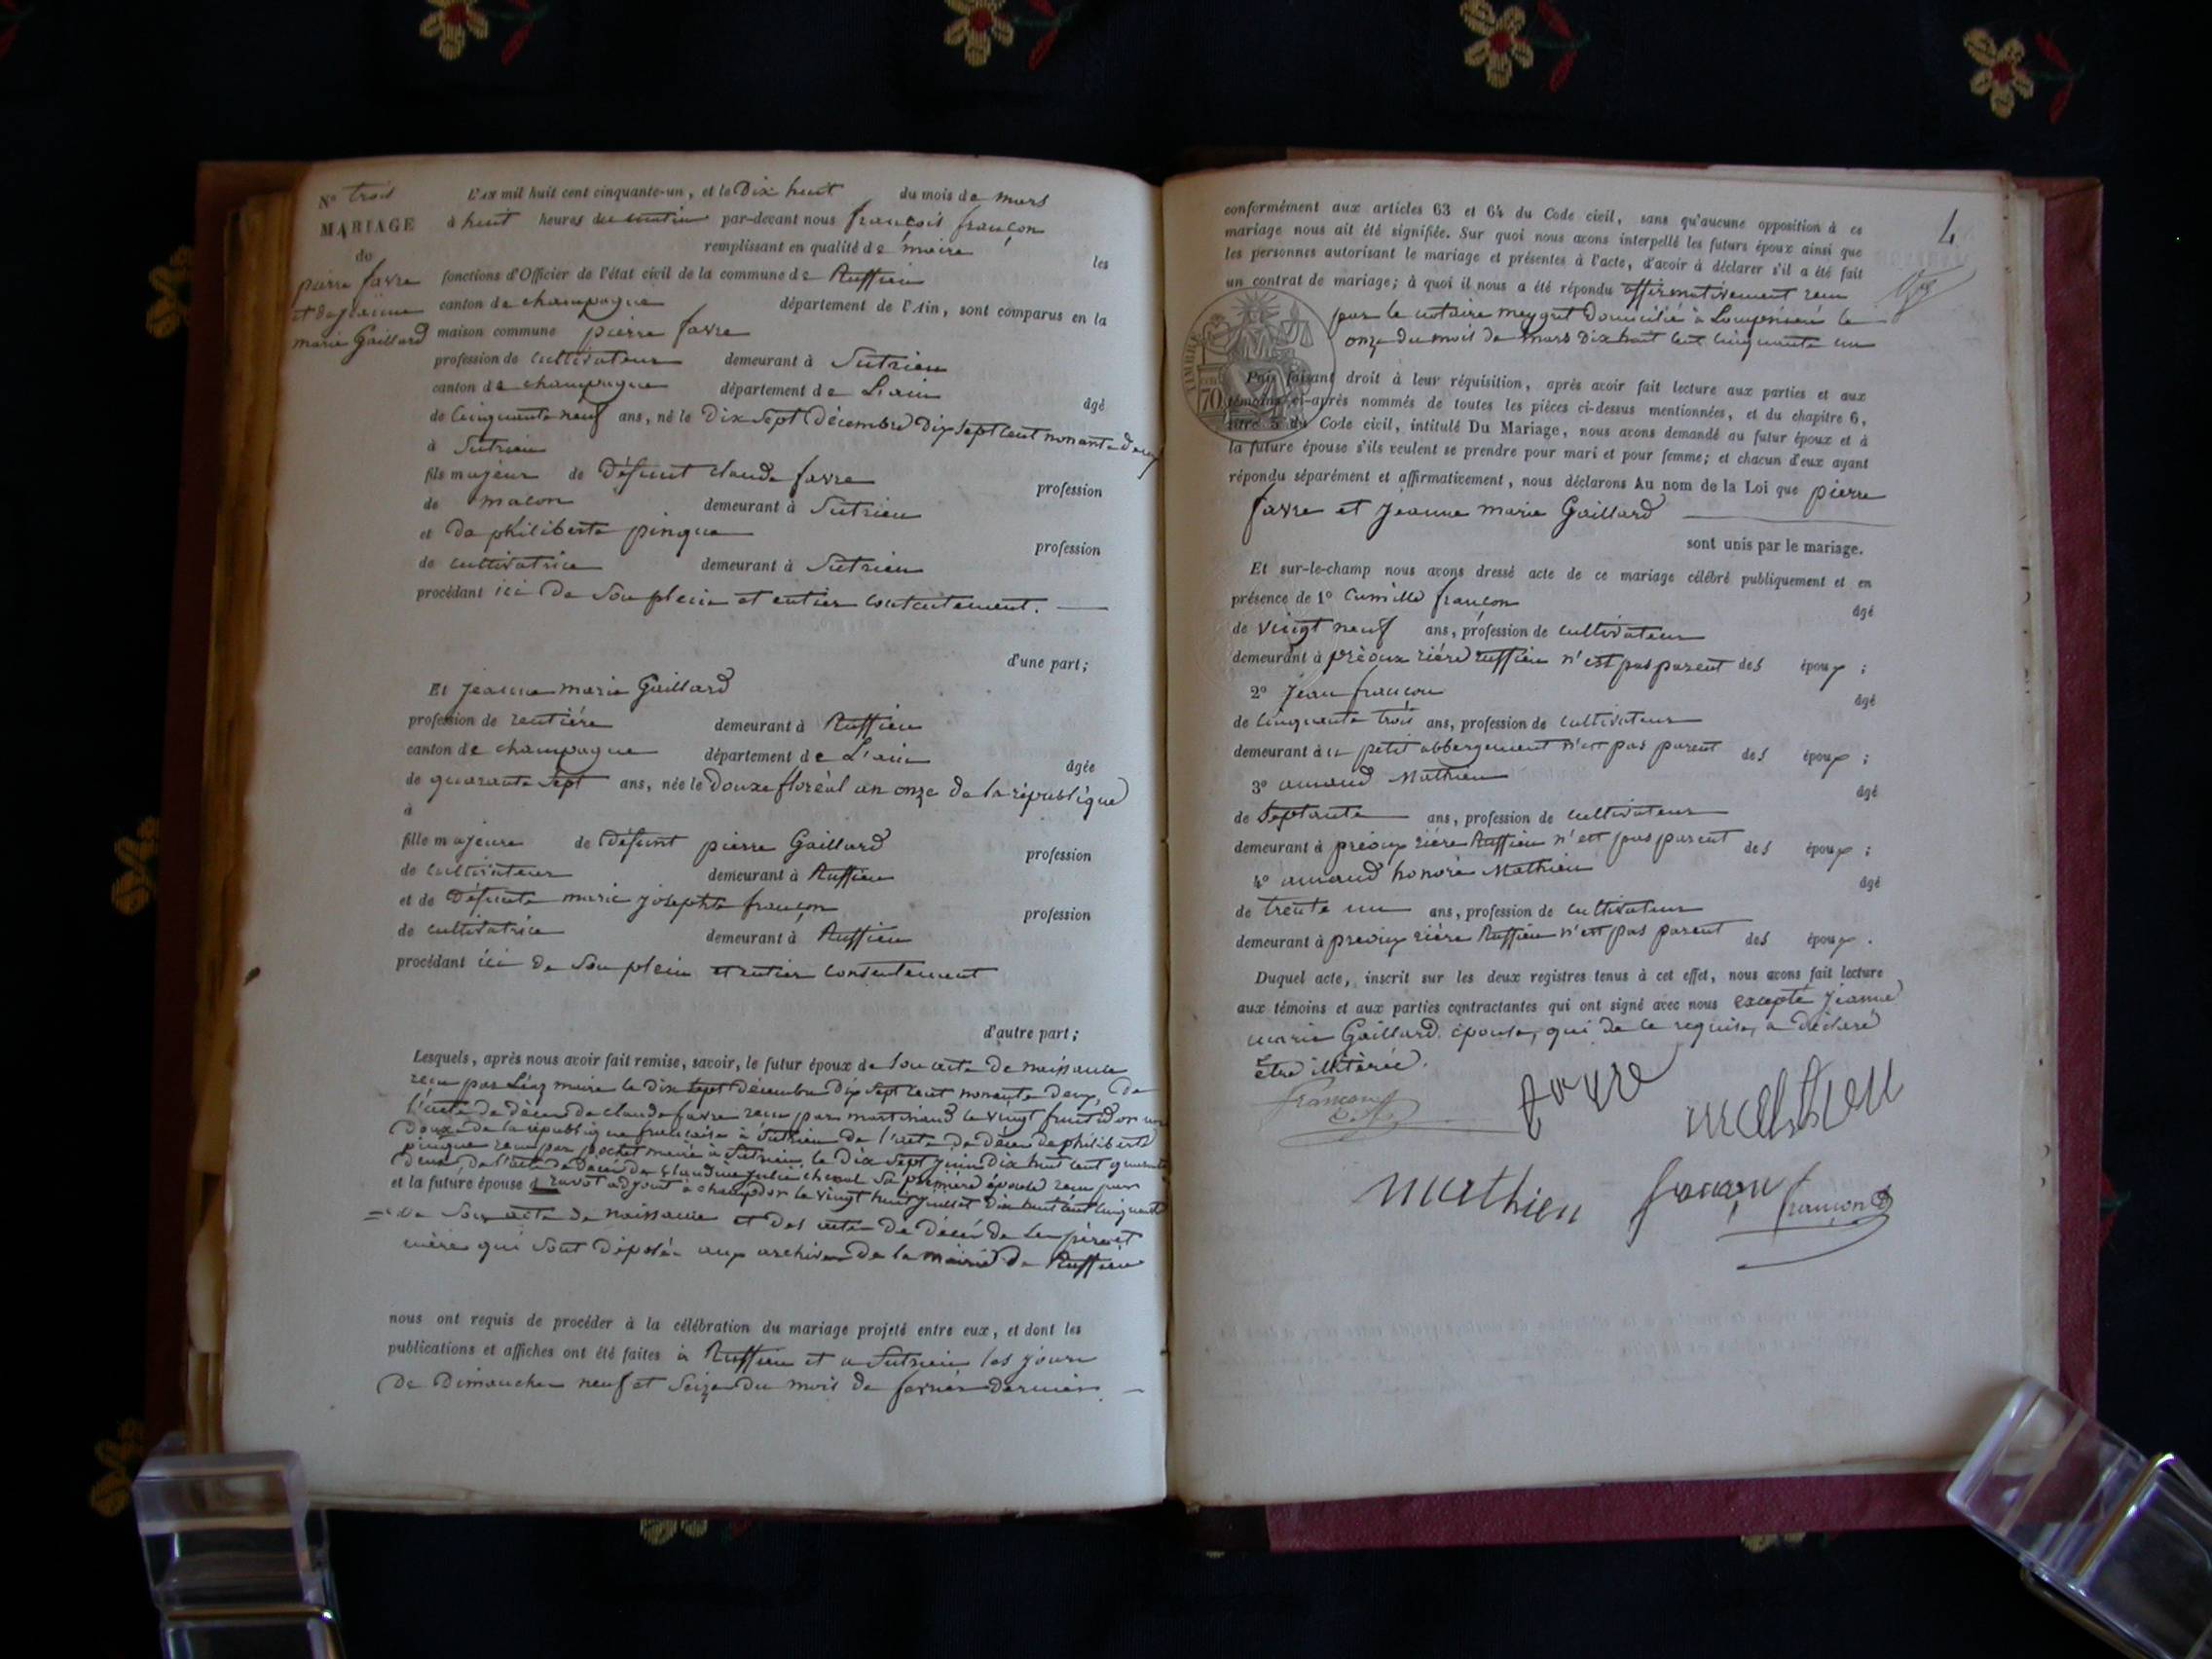 N° trois
MARIAGE
de
pierre favre
et de jeanne
marie Gaillard
L'AN mil huit cent cinquante-un, et le Dix huit du mois de mars
à huit heures du matin par-devant nous françois françon
remplissant en qualité de maire les
fonctions d'Officier de l'état civil de la commune de Ruffieu
canton de champagne département de l'Ain, sont comparus en la
maison commune pierre favre
profession de cultivateur demeurant à Sutrieu
canton de champagne département de L'ain âgé
de cinquante neuf ans, né le Dix Sept Décembre Dix Sept Cent nonante deux
à Sutrieu
fils majeur de Défunt claude favre profession
de macon demeurant à Sutrieu
et de philiberte pingue profession
de cultivatrice demeurant à Sutrieu
procédant ici De Son plein et entier contentement.
d'une part;
Et jeanne marie Gaillard
profession de rentière demeurant à Ruffieu
canton de champagne département de L'ain âgée
de quarante Sept ans, née le Douze floréal an onze de la république
à
fille majeure de Défunt pierre Gaillard profession
de cultivateur demeurant à Ruffieu
et de Défunte marie josephte françon profession
de cultivatrice demeurant à Ruffieu
procédant ici de Son plein et entier consentement
d'autre part;
Lesquels, après nous avoir fait remise, savoir, le futur époux de Son acte De naissance
reçu par maire le dix Sept Décembre Dix Sept Cent nonante Deux, De
l'acte de décès de claude favre reçu par martinand le vingt fructidor an
Douze de la république française à Sutrieu De l'acte De décès De philiberte
pingue reçu par pochet maire à Sutrieu le Dix Sept juin Dix huit Cent quarante
Deux, De l'acte De Décès De Claudine julie Sa première épouse reçu par
et la future épouse ravot adjoint à champdor le vingt huit juillet Dix huit cent cinquante
= de Son acte de naissance et Des actes De Décès De Ses père et
mère qui Sont Déposés aux archives De la mairie De Ruffieu
nous ont requis de procéder à la célébration du mariage projeté entre eux, et dont les
publications et affiches ont été faites à Ruffieu et a Sutrieu les jours
De Dimanches neuf et Seize Du mois De fevrier Dernier
4
conformément aux articles 63 et 64 du Code civil, sans qu'aucune opposition à ce
mariage nous ait été signifiée. Sur quoi nous avons interpellé les futurs époux ainsi que
les personnes autorisant le mariage et présentes à l'acte, d'avoir à déclarer s'il a été fait
un contrat de mariage; à quoi il nous a été répondu affirmativement reçu
par le notaire meygret Domicilié à Lompnieu le
onze du mois de mars Dix huit Cent cinquante un
TIMBRE
70
Puis faisant droit à leur réquisition, après avoir fait lecture aux parties et aux
témoins ci-après nommés de toutes les pièces ci-dessus mentionnées, et du chapitre 6,
titre 5 du Code civil, intitulé Du Mariage, nous avons demandé au futur époux et à
la future épouse s'ils veulent se prendre pour mari et pour femme; et chacun d'eux ayant
répondu séparément et affirmativement, nous déclarons Au nom de la Loi que pierre
favre et jeanne marie Gaillard
sont unis par le mariage.
Et sur-le-champ nous avons dressé acte de ce mariage célébré publiquement et en
présence de 1° Camille françon âgé
de vingt neuf ans, profession de cultivateur
demeurant à préoux rière Ruffieu n'est pas parent des époux;
2° jean françon âgé
de cinquante trois ans, profession de cultivateur
demeurant à u petit abbergement n'est pas parent des époux;
3° amand Mathieu âgé
de Septante ans, profession de cultivateur
demeurant à préoux rière Ruffieu n'est pas parent des époux;
4° amand honoré Mathieu âgé
de trente un ans, profession de cultivateur
demeurant à préoux rière Ruffieu n'est pas parent des époux.
Duquel acte, inscrit sur les deux registres tenus à cet effet, nous avons fait lecture
aux témoins et aux parties contractantes qui ont signé avec nous excepté jeanne
marie Gaillard épouse, qui de le requise, a déclaré
être illitérée.
françon favre mathieu
Mathieu françon françon